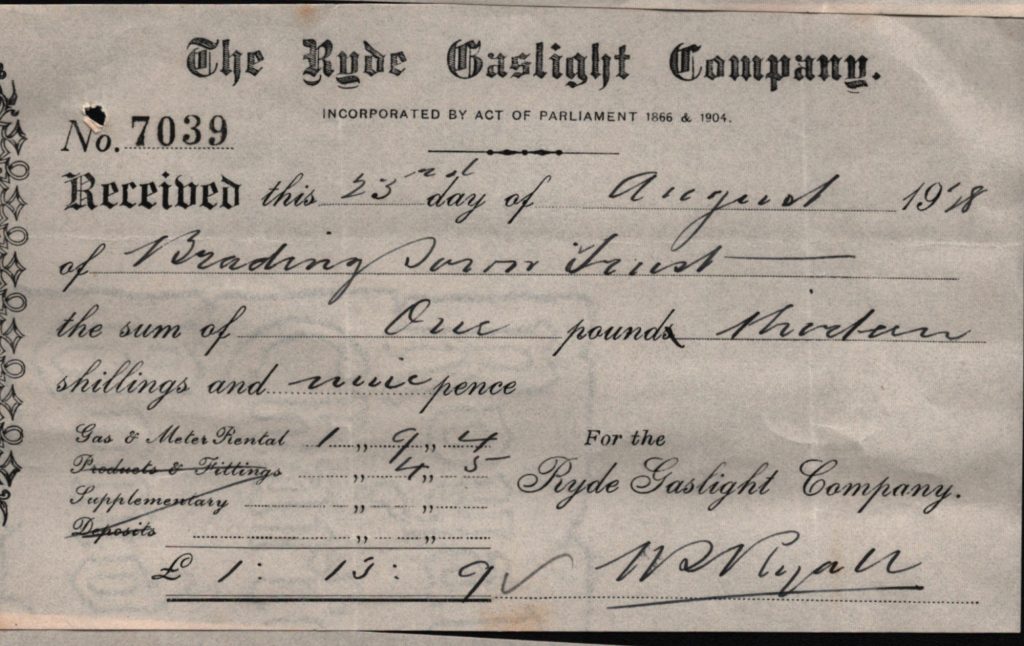 The Ryde Gaslight Company.
INCORPORATED BY ACT OF PARLIAMENT 1866 & 1904.
No. 7039
Received this 23rd day of August 1918
of Brading Town Trust
the sum of One pounds thirteen
shillings and nine pence
Gas & Meter Rental 1 „ 9 „ 4
Products & Fittings „ 4 „ 5
Supplementary „ „
Deposits „ „
£ 1 : 13 : 9 ✓
For the
Ryde Gaslight Company.
W Ryall